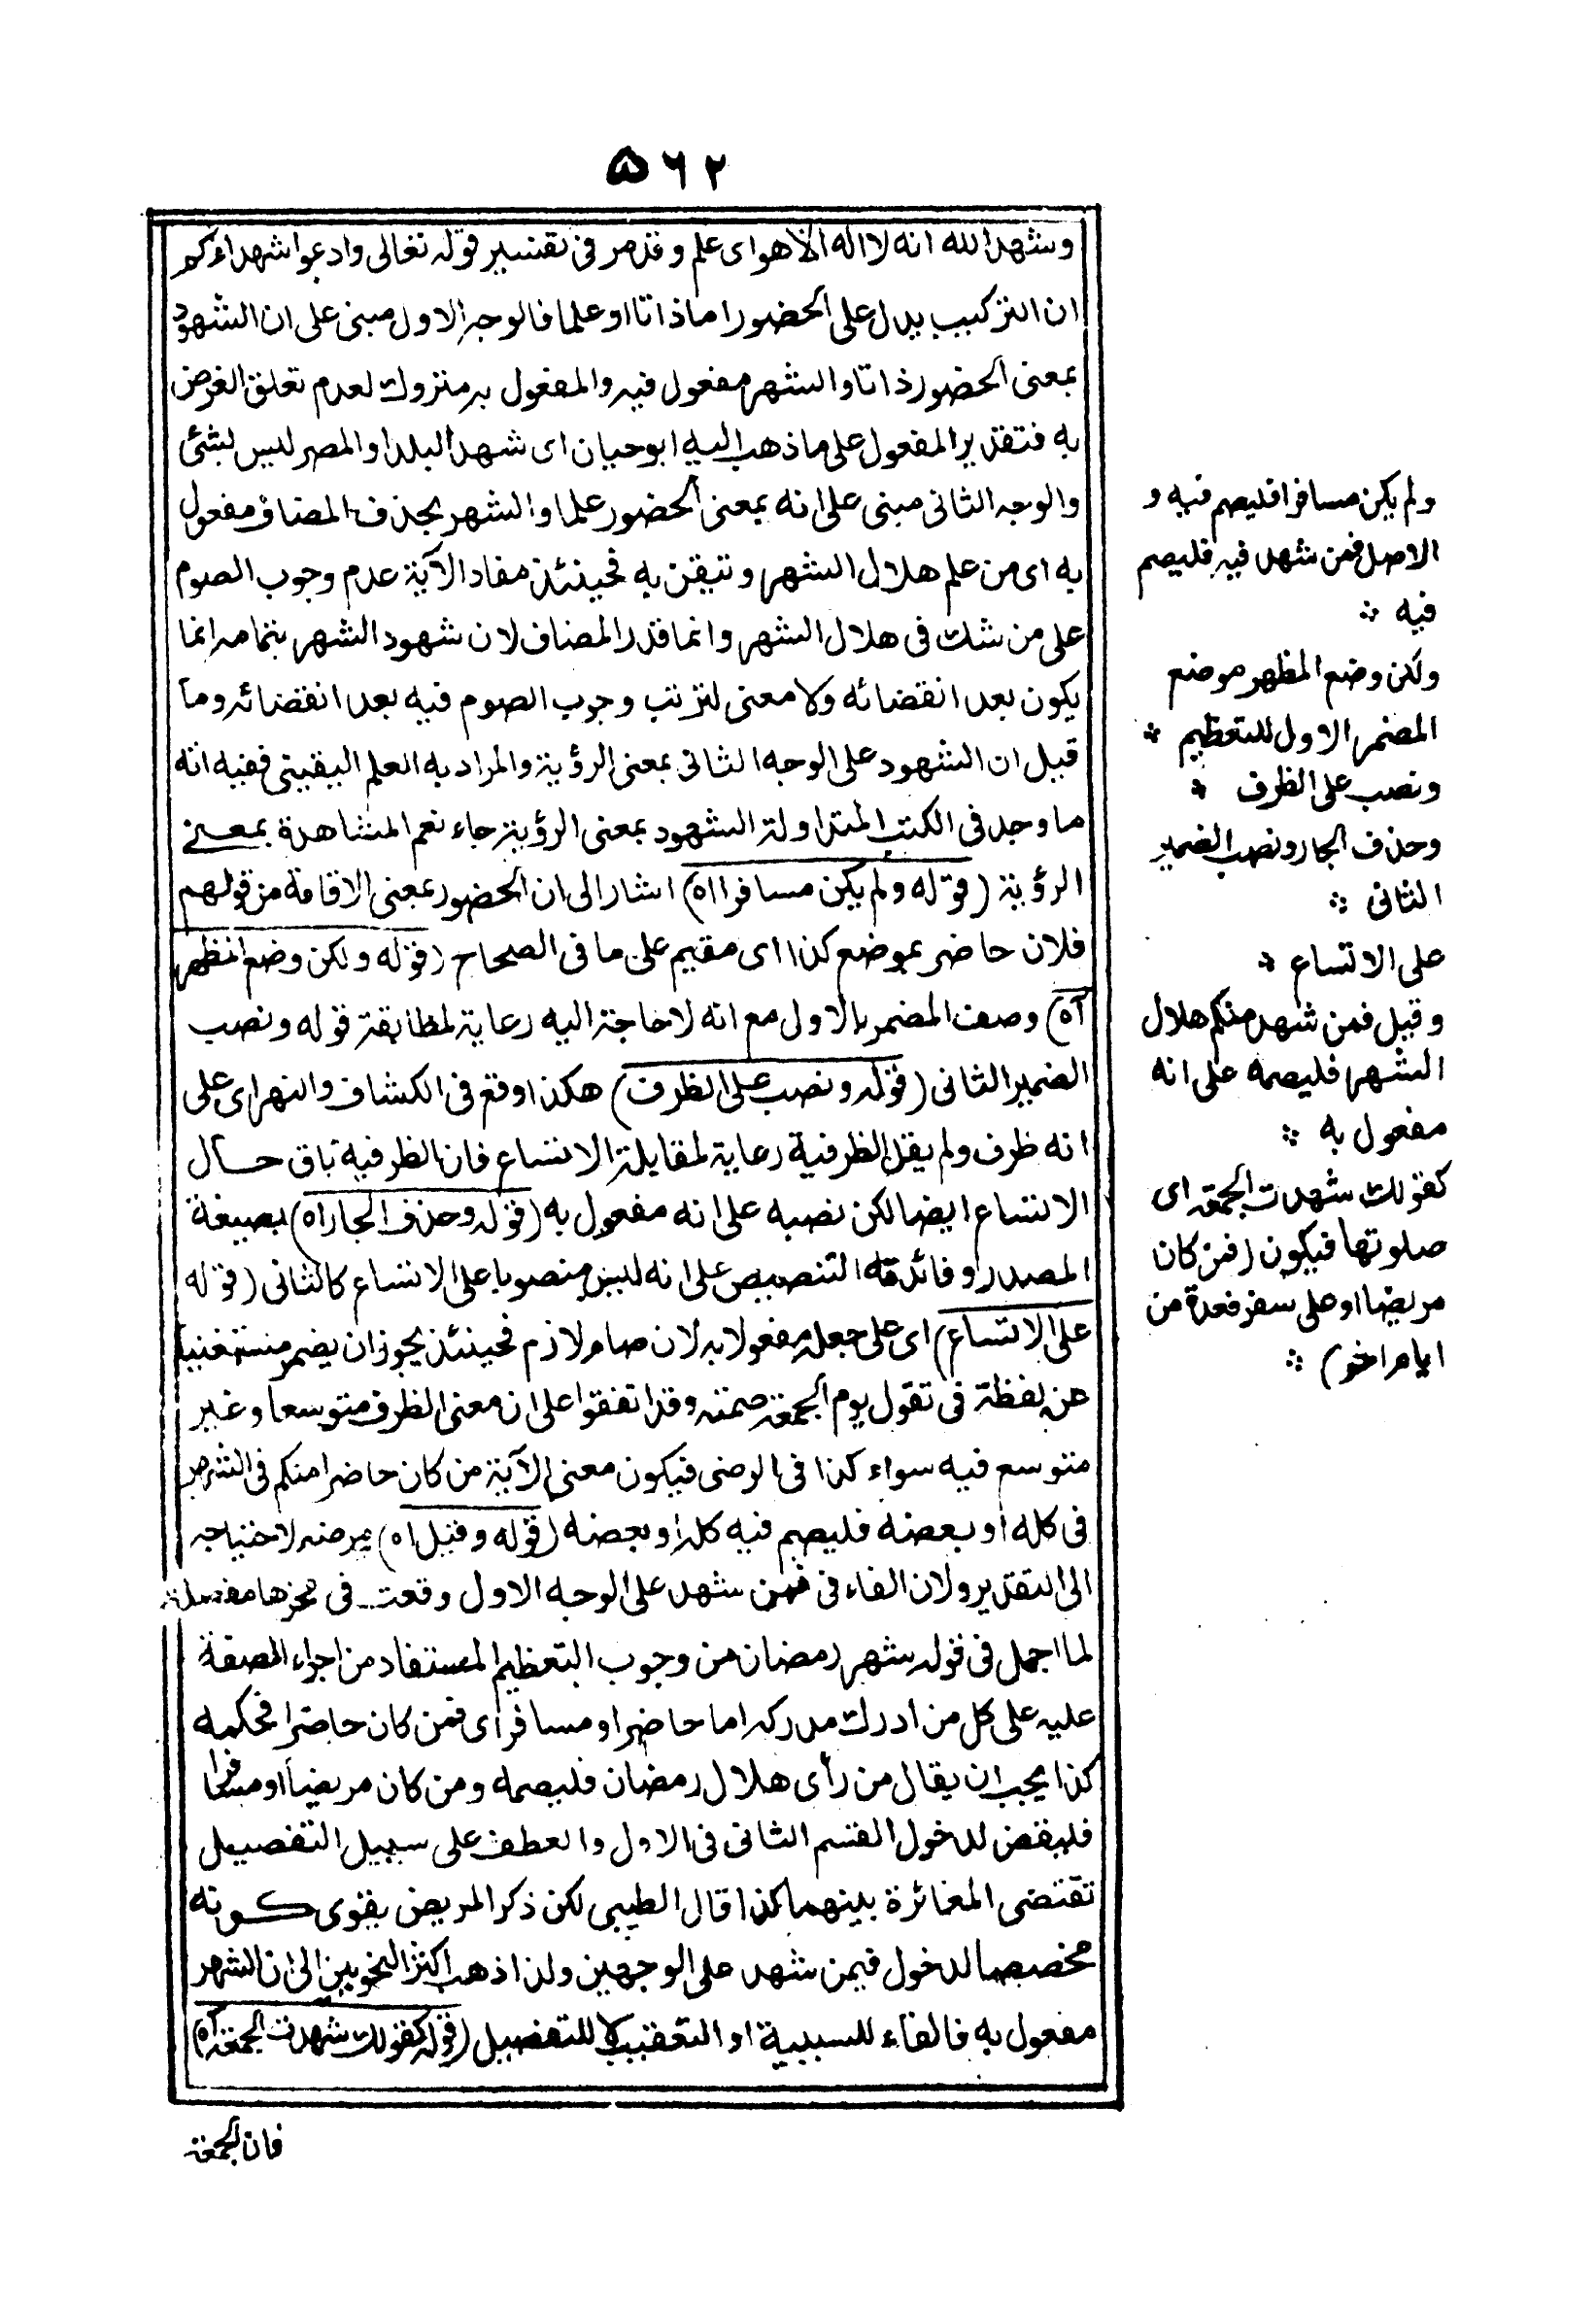 ٥٦٢
وشهد الله انه لا اله الا هو اى علم وقد مر فى تفسير قوله تعالى وادعوا شهداءكم
ان التركيب يدل على الحضور اما ذاتا او علما فالوجه الاول مبنى على ان الشهود
بمعنى الحضور ذاتا والشهر مفعول فيه والمفعول به متروك لعدم تعلق الغرض
به فتقدير المفعول على ما ذهب اليه ابو حيان اى شهد البلد او المصر ليس بشئ
والوجه الثانى مبنى على انه بمعنى الحضور علما والشهر بحذف المضاف مفعول
به اى من علم هلال الشهر وتيقن به فحينئذ مفاد الآية عدم وجوب الصوم
على من شك فى هلال الشهر وانما قدر المضاف لان شهود الشهر بتمامه انما
يكون بعد انقضائه ولا معنى لترتب وجوب الصوم فيه بعد انقضائه وما
قيل ان الشهود على الوجه الثانى بمعنى الرؤية والمراد به العلم اليقينى ففيه انه
ما وجد فى الكتب المتداولة الشهود بمعنى الرؤية جاء نعم المشاهدة بمعنى
الرؤية (قوله ولم يكن مسافرا اه) اشار الى ان الحضور بمعنى الاقامة من قولهم
فلان حاضر بموضع كذا اى مقيم على ما فى الصحاح (قوله ولكن وضع المظهر
آه) وصف المضمر بالاول مع انه لا حاجة اليه رعاية لمطابقة قوله ونصب
الضمير الثانى (قوله ونصب على الظرف) هكذا وقع فى الكشاف والنهر اى على
انه ظرف ولم يقل الظرفية رعاية لمقابلة الاتساع فان الظرفية باق حال
الاتساع ايضا لكن نصبه على انه مفعول به (قوله وحذف الجار اه) بصيغة
المصدر وفائدته التنصيص على انه ليس منصوبا على الاتساع كالثانى (قوله
على الاتساع) اى على جعله مفعولا به لان صام لازم فحينئذ يجوز ان يضمر مستغنيا
عن لفظة فى تقول يوم الجمعة صمته وقد اتفقوا على ان معنى الظرف متوسعا وغير
متوسع فيه سواء كذا فى الرضى فيكون معنى الآية من كان حاضرا منكم فى الشهر
فى كله او بعضه فليصم فيه كله او بعضه (قوله وقيل اه) مرضه لاحتياجه
الى التقدير ولان الفاء فى فمن شهد على الوجه الاول وقعت فى محزها مفصلة
لما اجمل فى قوله شهر رمضان من وجوب التعظيم المستفاد من اجراء الصفة
عليه على كل من ادرك مدركه اما حاضرا او مسافرا اى فمن كان حاضرا فحكمه
كذا يجب ان يقال من رأى هلال رمضان فليصمه ومن كان مريضا او مسافرا
فليقض لدخول القسم الثانى فى الاول والعطف على سبيل التفصيل
تقتضى المغائرة بينهما كذا قال الطيبى لكن ذكر المريض يقوى كونه
مخصصا لدخول فيمن شهد على الوجهين ولذا ذهب اكثر النحويين الى ان الشهر
مفعول به فالفاء للسببية او التعقيب لا للتفصيل (قوله كقولك شهدت الجمعة آه)
فان الجمعة
ولم يكن مسافرا فليصم فيه و
الاصل فمن شهد فيه فليصم
فيه
ولكن وضع المظهر موضع
المضمر الاول للتعظيم
ونصب على الظرف
وحذف الجار ونصب الضمير
الثانى
على الاتساع
وقيل فمن شهد منكم هلال
الشهر فليصمه على انه
مفعول به
كقولك شهدت الجمعة اى
صلوتها فيكون (فمن كان
مريضا او على سفر فعدة من
ايام اخر)